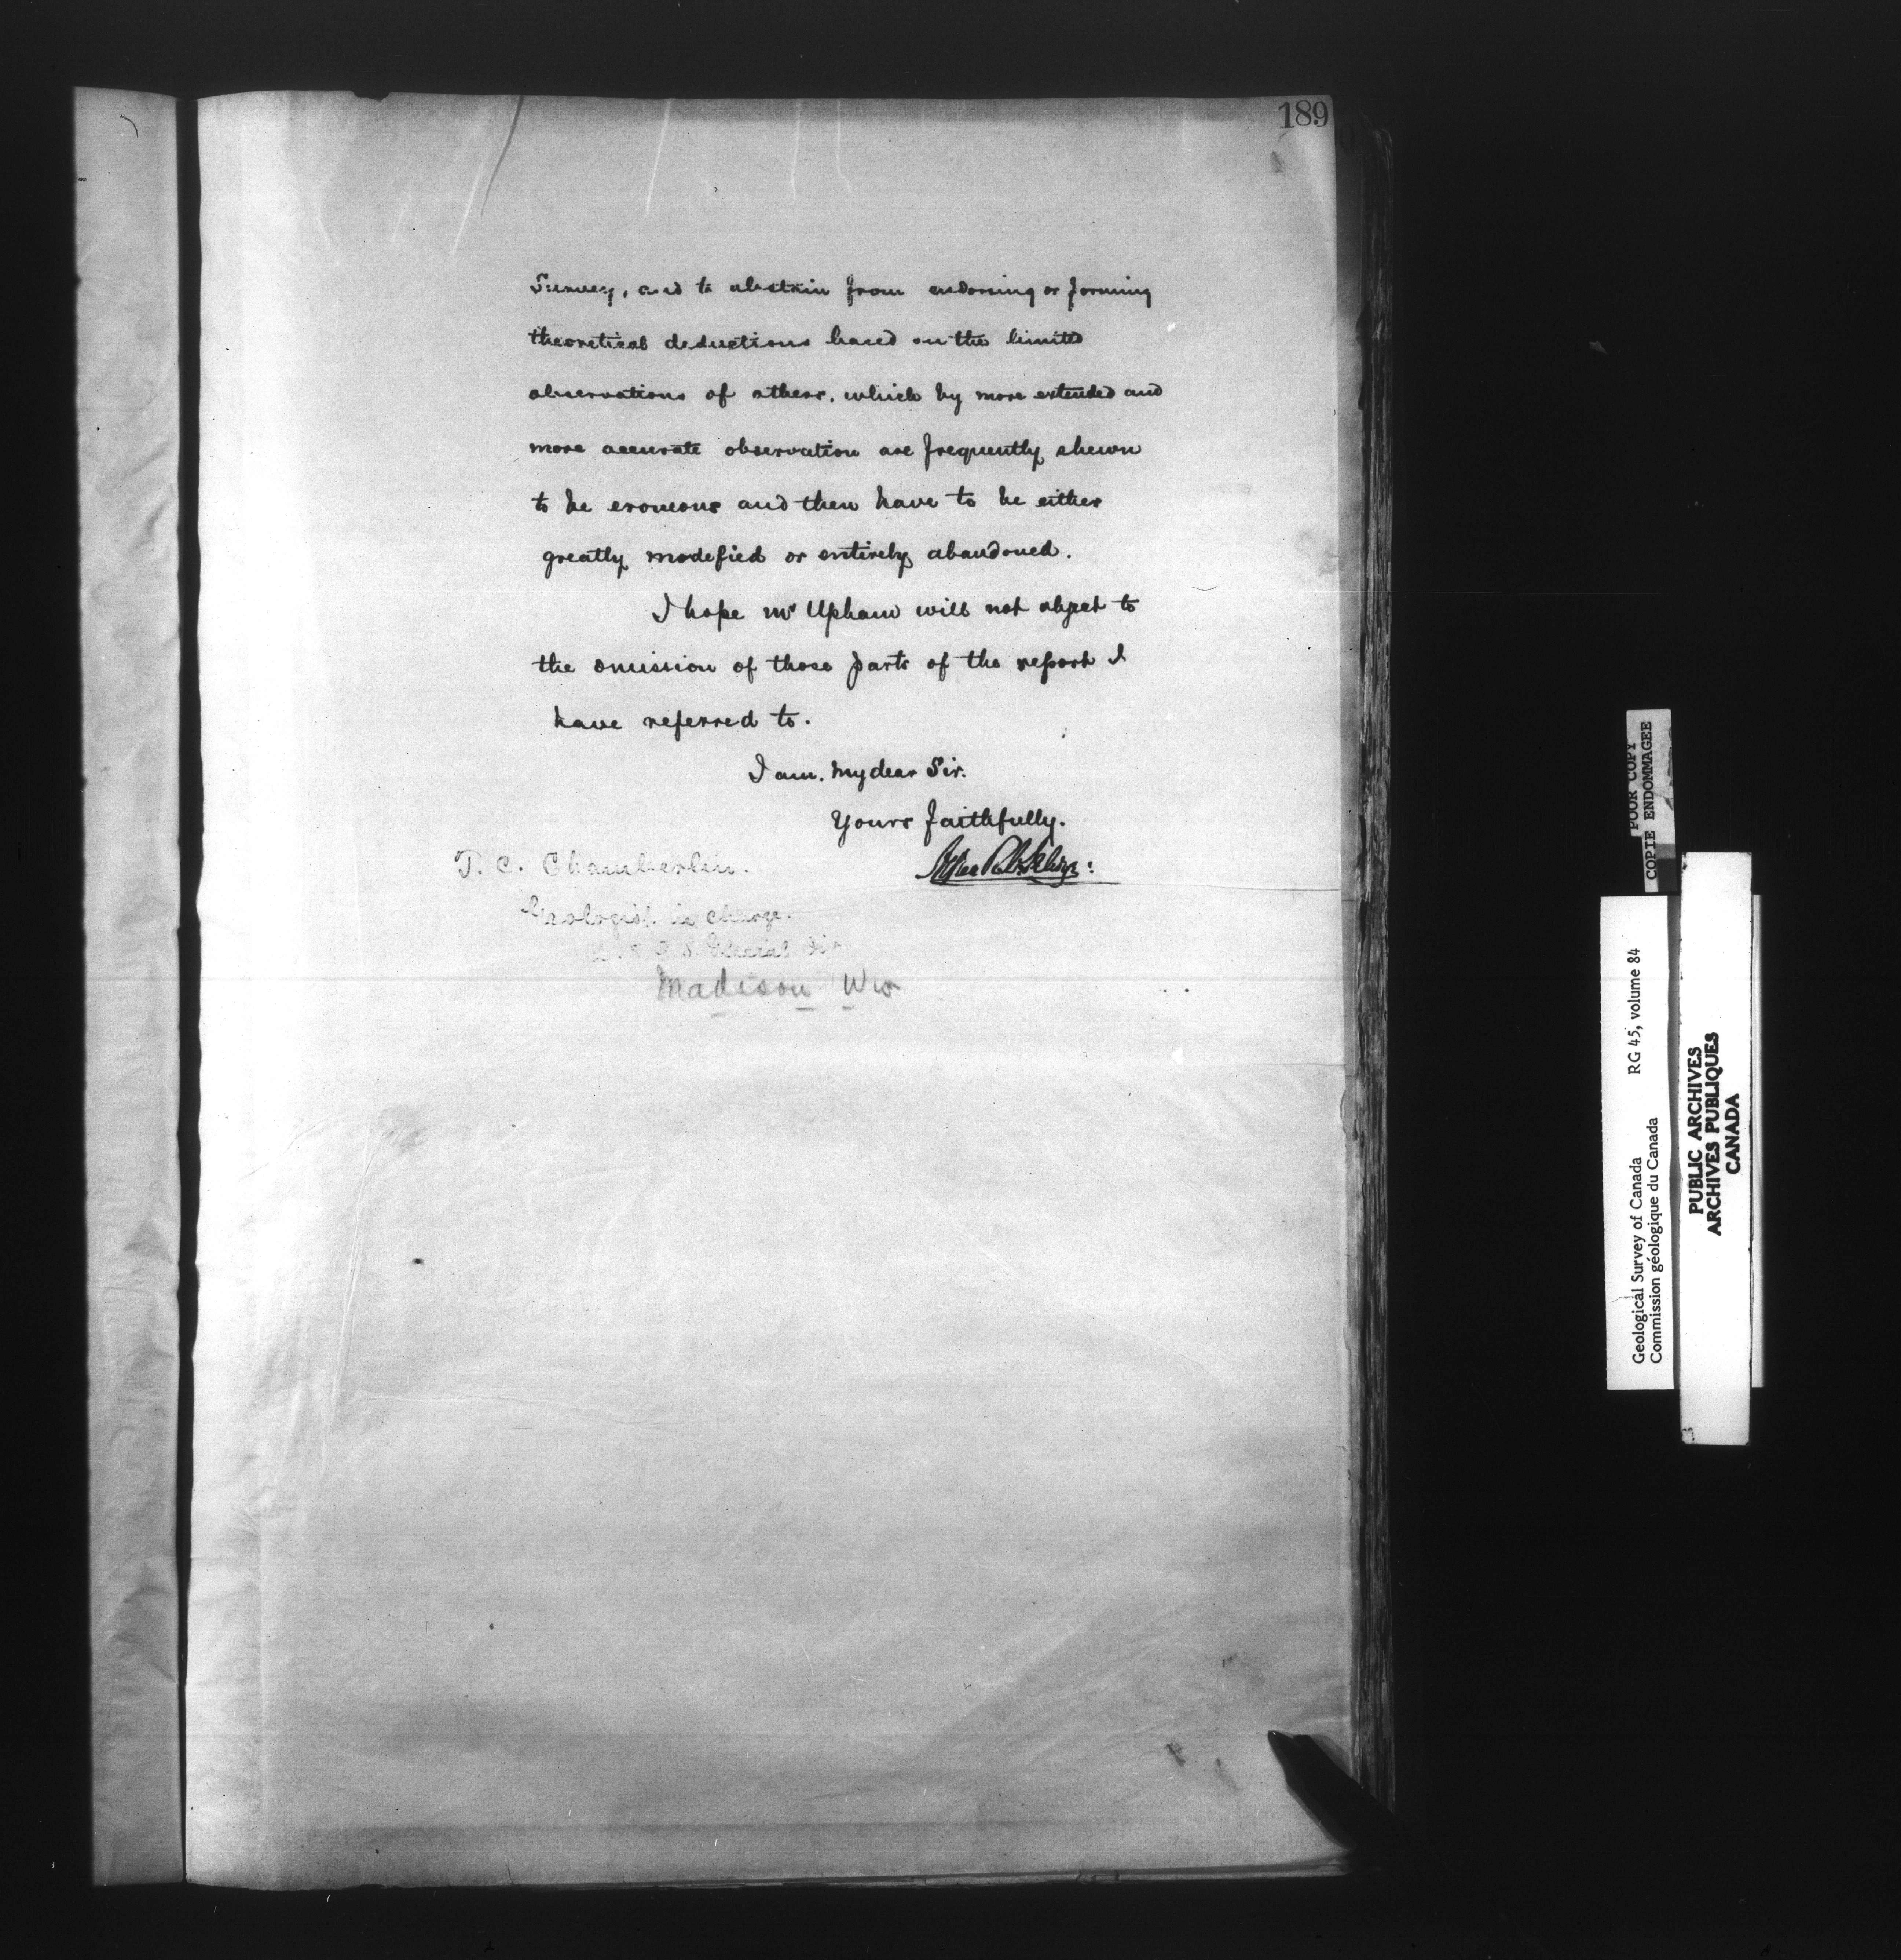 189
Survey, and to abstain from endorsing or forming
theoretical deductions based on the limited
observations of others, which by more extended and
more accurate observation are frequently shewn
to be eroneous and then have to be either
greatly modefied or entirely abandoned.
I hope Mr Upham will not object to
the omission of those parts of the report I
have referred to.
I am. My dear Sir.
Yours faithfully.
T. C. Chamberlin.
Geologist in charge.
S. Glacial Div
Madison Wis
POOR COPY
COPIE ENDOMMAGEE
Geological Survey of Canada RG 45, volume 84
Commission géologique du Canada
PUBLIC ARCHIVES
ARCHIVES PUBLIQUES
CANADA